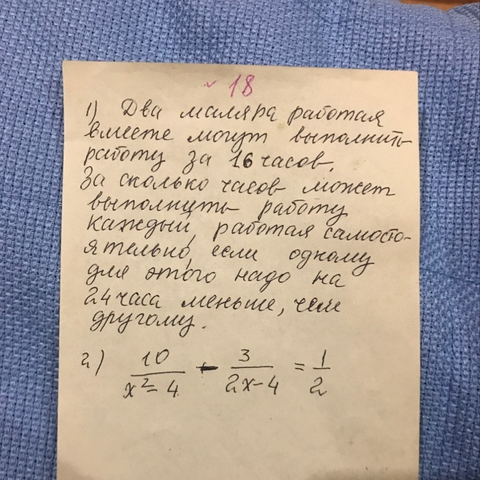 18
1) Два маляра работая
вместе могут выполнить
работу за 16 часов.
За сколько часов может
выполнить работу
каждый, работая самосто-
ятельно, если одному
для этого надо на
24 часа меньше, чем
другому.
2) 10/(x² - 4) - 3/(2x-4) = 1/2